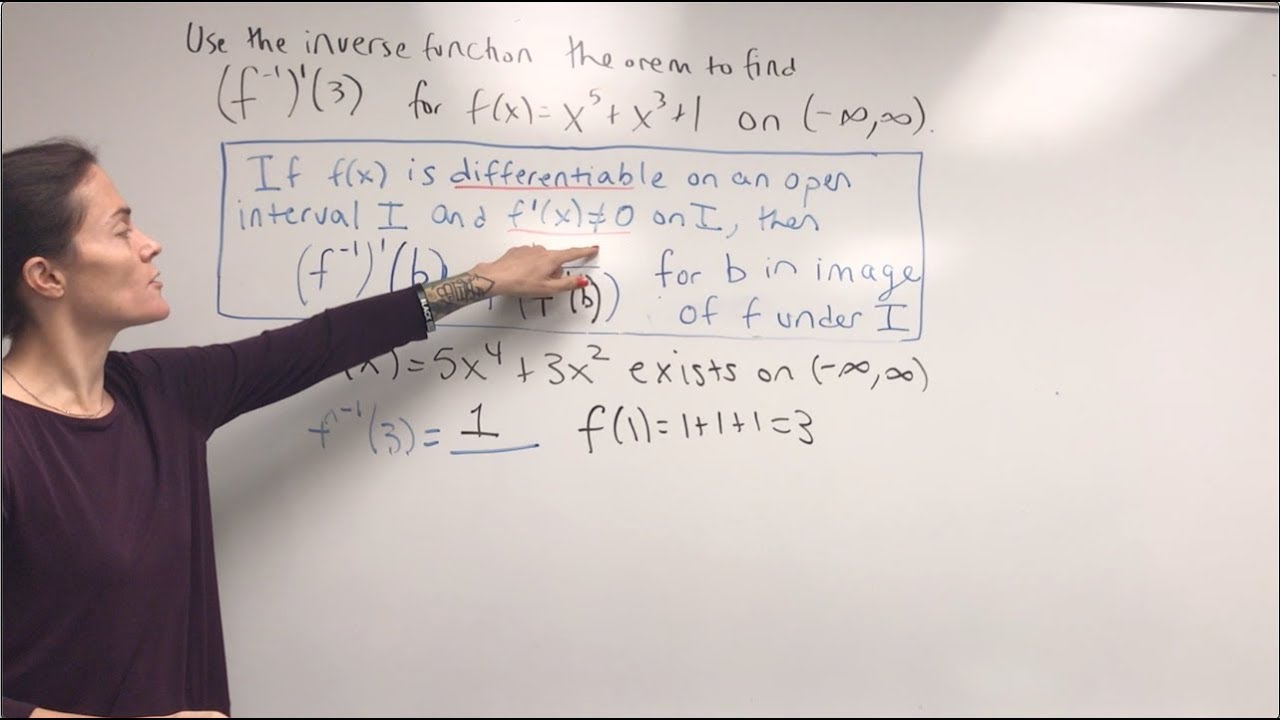 Use the inverse function theorem to find
(f⁻¹)'(3) for f(x)=x⁵+x³+1 on (-∞,∞).
If f(x) is differentiable on an open
interval I and f'(x)≠0 on I, then
(f⁻¹)'(b) (b)) for b in image
of f under I
x)=5x⁴+3x² exists on (-∞,∞)
f⁻¹(3)= 1 f(1)=1+1+1=3